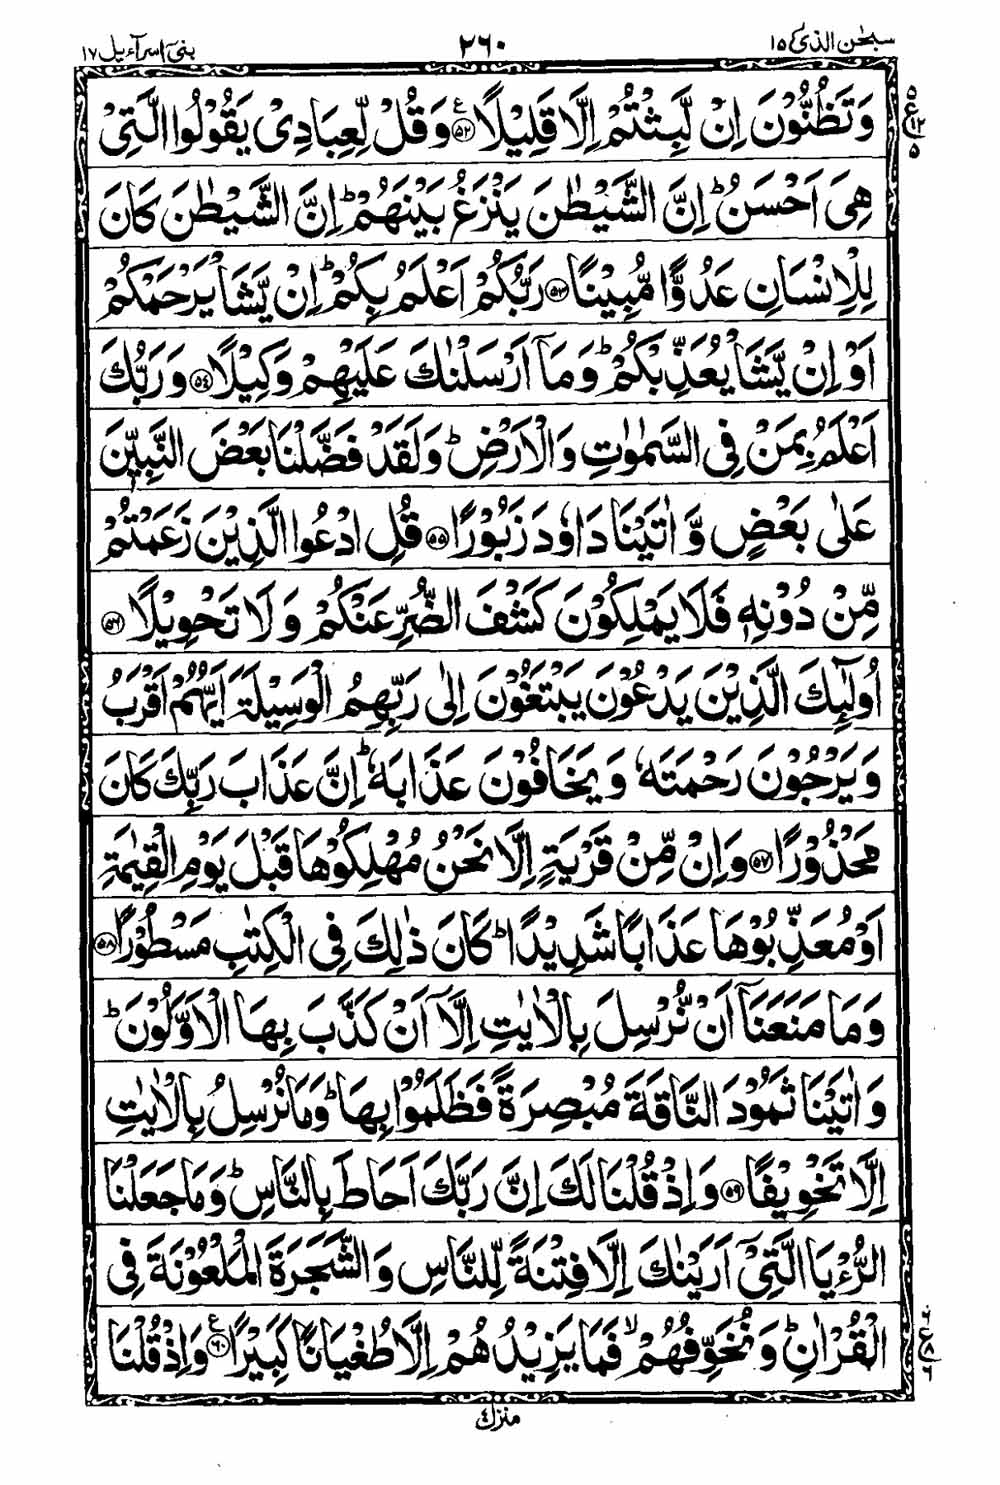 سبحٰن الذی ١٥ ٢٦٠ بنی اسرآءیل ١٧
وَتَظُنُّوْنَ اِنْ لَّبِثْتُمْ اِلَّا قَلِيْلًا ﴿٥٢﴾ ع وَقُلْ لِّعِبَادِىْ يَقُوْلُوا الَّتِىْ
هِىَ اَحْسَنُ ؕ اِنَّ الشَّيْطٰنَ يَنْزَغُ بَيْنَهُمْ ؕ اِنَّ الشَّيْطٰنَ كَانَ
لِلْاِنْسَانِ عَدُوًّا مُّبِيْنًا ﴿٥٣﴾ رَبُّكُمْ اَعْلَمُ بِكُمْ ؕ اِنْ يَّشَاْ يَرْحَمْكُمْ
اَوْ اِنْ يَّشَاْ يُعَذِّبْكُمْ ؕ وَمَاۤ اَرْسَلْنٰكَ عَلَيْهِمْ وَكِيْلًا ﴿٥٤﴾ وَرَبُّكَ
اَعْلَمُ بِمَنْ فِى السَّمٰوٰتِ وَالْاَرْضِ ؕ وَلَقَدْ فَضَّلْنَا بَعْضَ النَّبِيّٖنَ
عَلٰى بَعْضٍ وَّاٰتَيْنَا دَاوٗدَ زَبُوْرًا ﴿٥٥﴾ قُلِ ادْعُوا الَّذِيْنَ زَعَمْتُمْ
مِّنْ دُوْنِهٖ فَلَا يَمْلِكُوْنَ كَشْفَ الضُّرِّ عَنْكُمْ وَلَا تَحْوِيْلًا ﴿٥٦﴾
اُولٰٓئِكَ الَّذِيْنَ يَدْعُوْنَ يَبْتَغُوْنَ اِلٰى رَبِّهِمُ الْوَسِيْلَةَ اَيُّهُمْ اَقْرَبُ
وَيَرْجُوْنَ رَحْمَتَهٗ وَيَخَافُوْنَ عَذَابَهٗ ؕ اِنَّ عَذَابَ رَبِّكَ كَانَ
مَحْذُوْرًا ﴿٥٧﴾ وَاِنْ مِّنْ قَرْيَةٍ اِلَّا نَحْنُ مُهْلِكُوْهَا قَبْلَ يَوْمِ الْقِيٰمَةِ
اَوْ مُعَذِّبُوْهَا عَذَابًا شَدِيْدًا ؕ كَانَ ذٰلِكَ فِى الْكِتٰبِ مَسْطُوْرًا ﴿٥٨﴾
وَمَا مَنَعَنَاۤ اَنْ نُّرْسِلَ بِالْاٰيٰتِ اِلَّاۤ اَنْ كَذَّبَ بِهَا الْاَوَّلُوْنَ ؕ
وَاٰتَيْنَا ثَمُوْدَ النَّاقَةَ مُبْصِرَةً فَظَلَمُوْا بِهَا ؕ وَمَا نُرْسِلُ بِالْاٰيٰتِ
اِلَّا تَخْوِيْفًا ﴿٥٩﴾ وَاِذْ قُلْنَا لَكَ اِنَّ رَبَّكَ اَحَاطَ بِالنَّاسِ ؕ وَمَا جَعَلْنَا
الرُّءْيَا الَّتِىْۤ اَرَيْنٰكَ اِلَّا فِتْنَةً لِّلنَّاسِ وَالشَّجَرَةَ الْمَلْعُوْنَةَ فِى
الْقُرْاٰنِ ؕ وَنُخَوِّفُهُمْ ۙ فَمَا يَزِيْدُهُمْ اِلَّا طُغْيَانًا كَبِيْرًا ﴿٦٠﴾ ع وَاِذْ قُلْنَا
منزل ٤